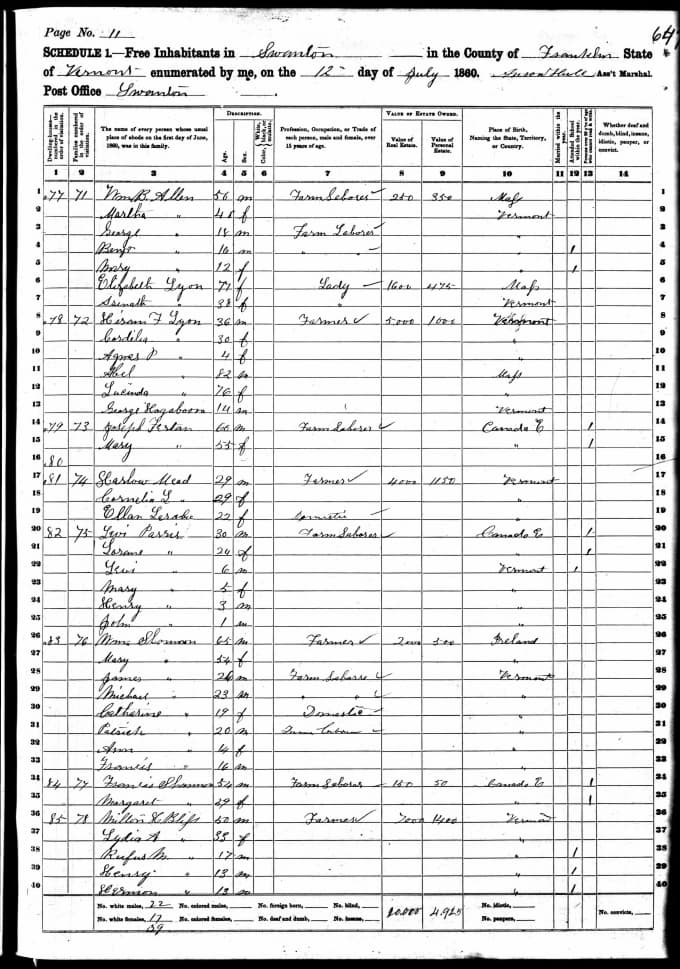 Page No. 11
64
SCHEDULE 1.—Free Inhabitants in Swanton in the County of Franklin State
of Vermont enumerated by me, on the 12 day of July 1860. Ass't Marshal.
Post Office Swanton
Dwelling-houses—numbered in the order of visitation.
Families numbered in the order of visitation.
The name of every person whose usual place of abode on the first day of June, 1860, was in this family.
DESCRIPTION.
Age.
Sex.
Color, White, black, or mulatto.
Profession, Occupation, or Trade of each person, male and female, over 15 years of age.
VALUE OF ESTATE OWNED.
Value of Real Estate.
Value of Personal Estate.
Place of Birth, Naming the State, Territory, or Country.
Married within the year.
Attended School within the year.
Persons over 20 y'rs of age who cannot read & write.
Whether deaf and dumb, blind, insane, idiotic, pauper, or convict.
1 2 3 4 5 6 7 8 9 10 11 12 13 14
1 77 71 Wm B. Allen 56 m Farm Laborer 250 350 Mass 1
2 Martha " 48 f Vermont 2
3 George " 18 m Farm Laborer " 3
4 Benj " 16 m " " " 1 4
5 Mary " 12 f " 1 5
6 Elizabeth Lyon 71 f Lady 1600 475 Mass 6
7 " 38 f " Vermont 7
8 78 72 Hiram F Lyon 36 m Farmer 5000 1000 Vermont 8
9 Cordelia " 30 f " 9
10 Agnes P " 4 f " 10
11 Abel " 82 m Mass 11
12 Lucinda " 76 f " 12
13 George Hogaboom 14 m Vermont 13
14 79 73 Joseph 60 m Farm Laborer Canada E 1 14
15 Mary " 55 f " 1 15
16 80 16
17 81 74 Harlow Mead 29 m Farmer 4000 1150 Vermont 17
18 Cornelia L " 29 f " 18
19 Ellan 22 f Domestic " 19
20 82 75 Levi 30 m Farm Laborer Canada E 1 20
21 " 24 f " 1 21
22 Levi " 6 m Vermont 1 22
23 Mary " 5 f " 23
24 Henry " 3 m " 24
25 John " 1 m " 25
26 83 76 Wm 65 m Farmer 2000 300 Ireland 26
27 Mary " 54 f " 27
28 James " 26 m Farm Vermont 28
29 Michael " 23 m " " " 29
30 Catharine " 19 f Domestic " 30
31 Patrick " 20 m " 31
32 Ann " 14 f " 32
33 Francis " 16 m " 33
34 84 77 Francis 54 m Farm Laborer 150 50 Canada E 1 34
35 Margaret " 29 f " 1 35
36 85 78 Milton H. Bliss 50 m Farmer 7000 1400 Vermont 36
37 Lydia A " 33 f " 37
38 Rufus M. " 17 m " 1 38
39 Henry " 13 m " 1 39
40 " 13 m " 1 40
No. white males, 22 No. colored males, No. foreign born, No. blind,
No. white females, 17 No. colored females, No. deaf and dumb, No. insane,
20.000 4.925
No. idiotic,
No. paupers,
No. convicts,
39